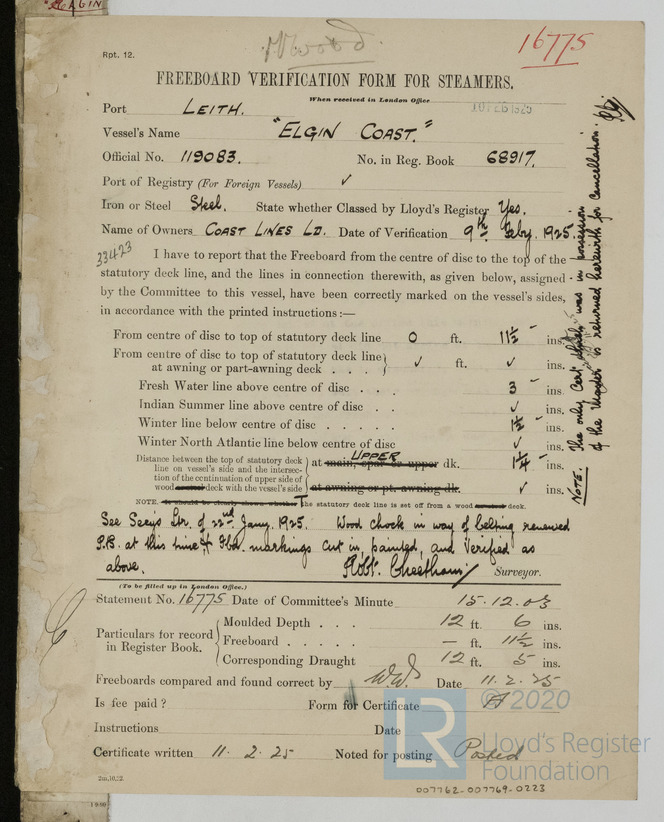 ELGIN
Rpt. 12.
Wood
16775
FREEBOARD VERIFICATION FORM FOR STEAMERS.
When received in London Office
10 FEB 1925
Port LEITH.
Vessel's Name "ELGIN COAST."
Official No. 119083. No. in Reg. Book 68917.
Port of Registry (For Foreign Vessels) ✓
Iron or Steel Steel. State whether Classed by Lloyd's Register Yes.
Name of Owners COAST LINES LD. Date of Verification 9th Feby. 1925.
33423
I have to report that the Freeboard from the centre of disc to the top of the
statutory deck line, and the lines in connection therewith, as given below, assigned
by the Committee to this vessel, have been correctly marked on the vessel's sides,
in accordance with the printed instructions:—
From centre of disc to top of statutory deck line 0 ft. 11½ ins.
From centre of disc to top of statutory deck line
at awning or part-awning deck . . . ✓ ft. ✓ ins.
Fresh Water line above centre of disc . . . 3 ins.
Indian Summer line above centre of disc . . ✓ ins.
Winter line below centre of disc . . . . . 1½ ins.
Winter North Atlantic line below centre of disc ✓ ins.
Distance between the top of statutory deck
line on vessel's side and the intersec-
tion of the continuation of upper side of
wood deck with the vessel's side
at main, spar or upper dk. UPPER 1¼ ins.
at awning or pt. awning dk. ✓ ins.
NOTE. It should be clearly shown whether The statutory deck line is set off from a wood deck.
See Secy's Ltr. of 22nd Jany. 1925. Wood chock in way of belting renewed
P.S. at this time & Fbd. markings cut in, painted, and Verified as
above. Robt. Cheetham Surveyor.
NOTE. The only Cert. which was in possession
of the Master is returned herewith for cancellation.
(To be filled up in London Office.)
Statement No. 16775 Date of Committee's Minute 15.12.03
Particulars for record
in Register Book.
Moulded Depth . . . 12 ft. 6 ins.
Freeboard . . . . . — ft. 11½ ins.
Corresponding Draught 12 ft. 5 ins.
Freeboards compared and found correct by Date 11.2.25
Is fee paid? Form for Certificate A
Instructions Date
Certificate written 11.2.25 Noted for posting Posted
2m,10,22.
© 2020
LR
Lloyd's Register
Foundation
007762-007769-0223